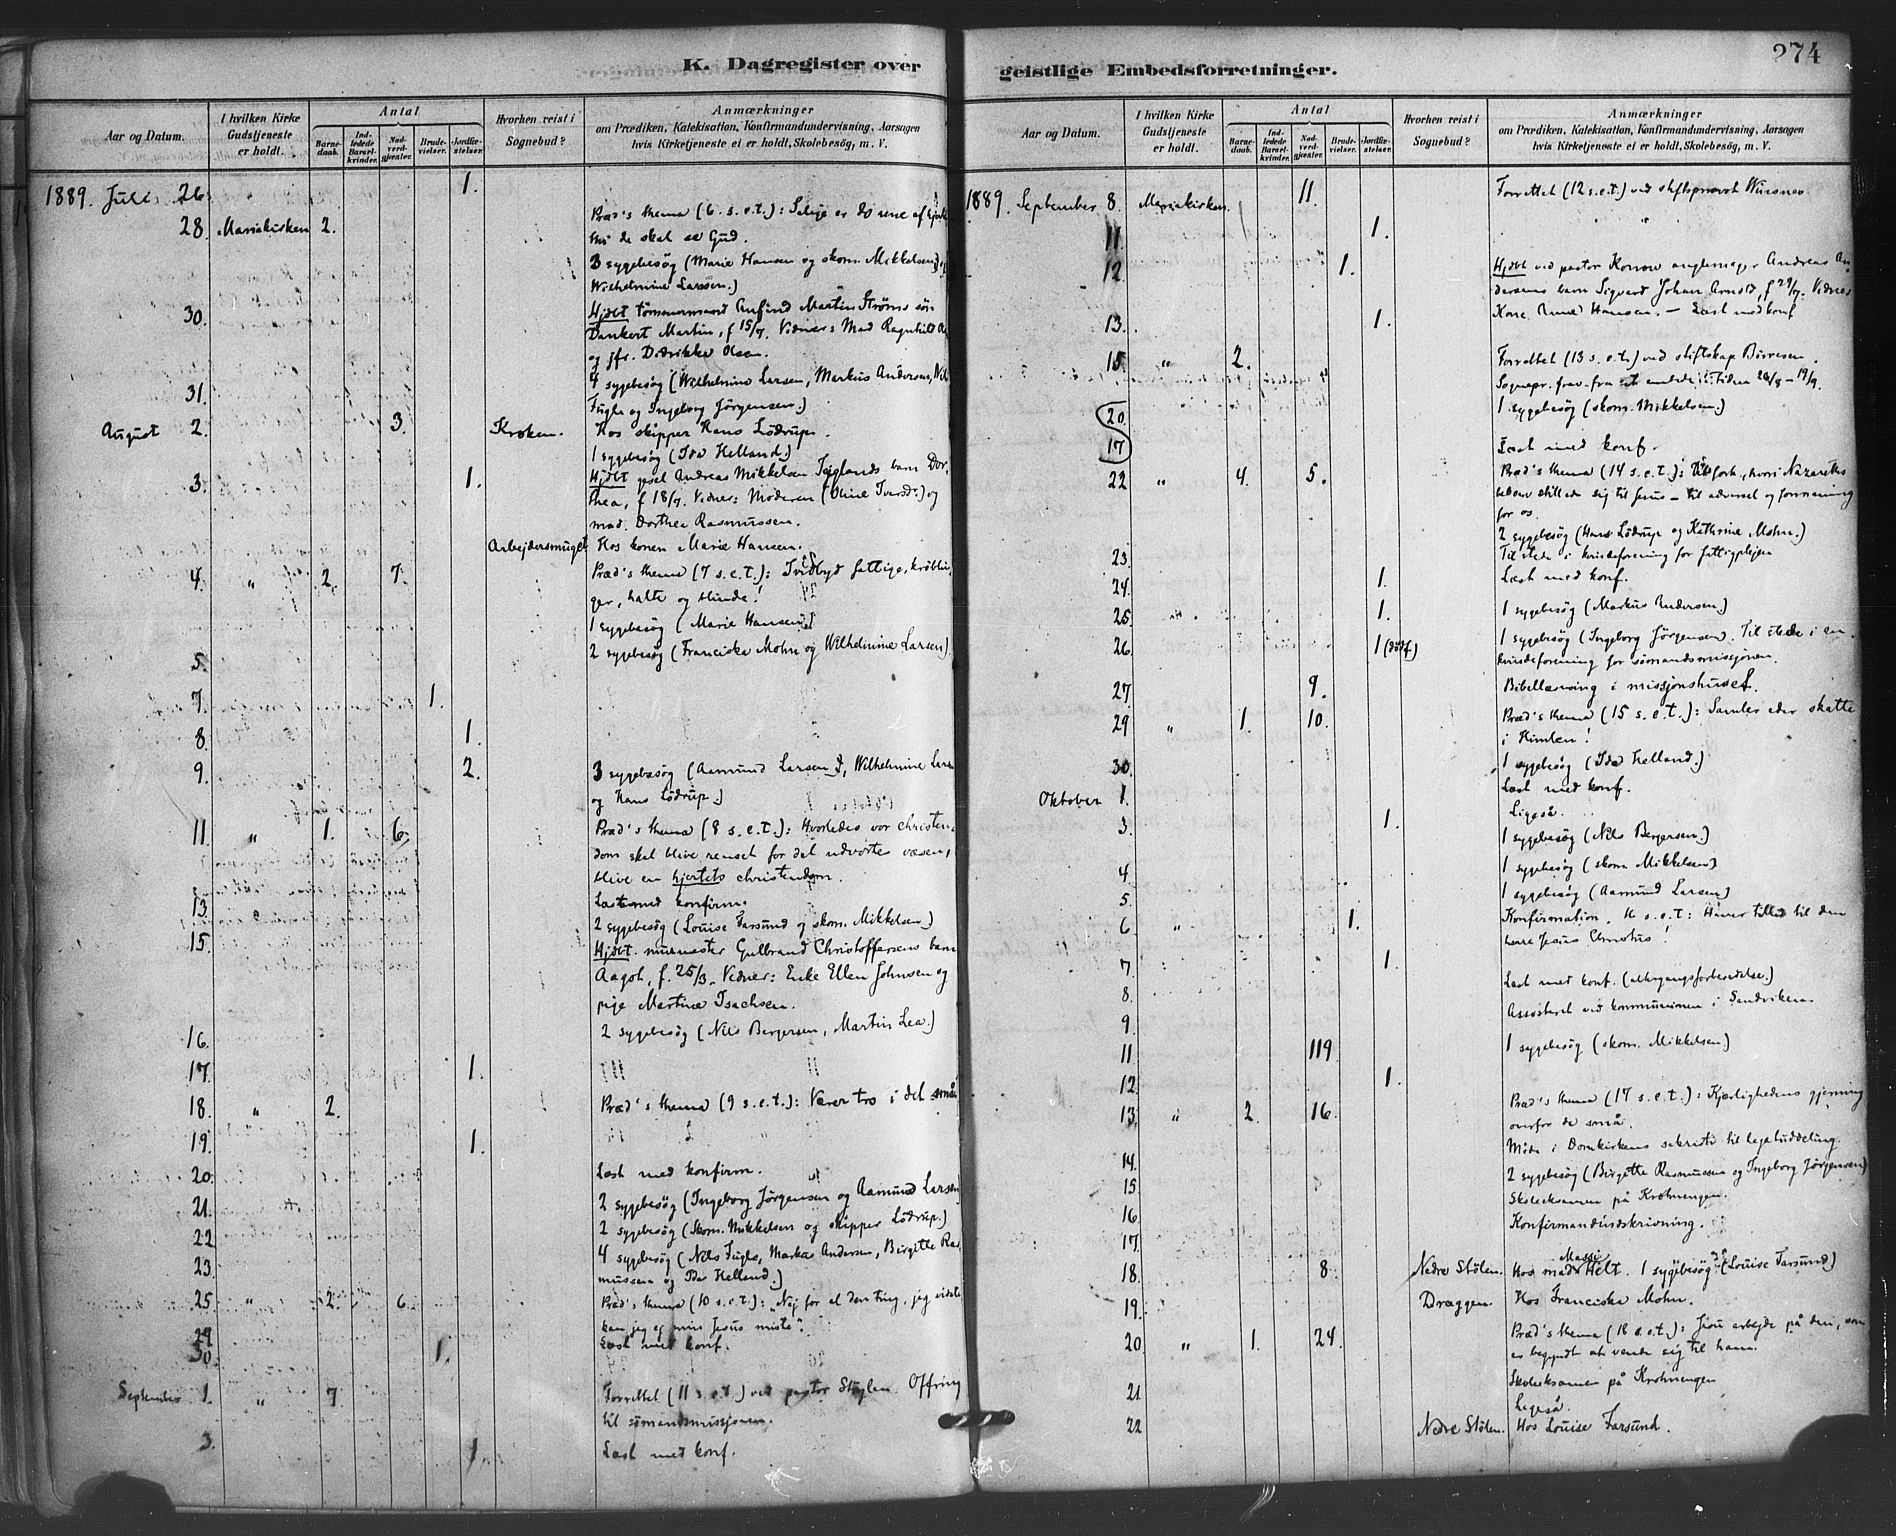 K. Dagregister over
Aar og Datum.
I hvilken Kirke Gudstjeneste er holdt.
Antal
Barnedaab.
Indledede Barselkvinder.
Nadverdgjester.
Brudevielser.
Jordfæstelser.
Hvorhen reist i Sognebud?
Anmærkninger
om Prædiken, Katekisation, Konfirmandundervisning, Aarsagen
hvis Kirketjeneste ei er holdt, Skolebesøg, m. V.
1889. Juli 26. 1.
28. Mariakirken 2. Præd's thema (6. s. e. t.): Salige er de rene af hjertet
thi de skal se Gud.
3 sygebesög (Marie Hansen og skom. Mikkelsen og
Wilhelmine Larssen.)
30. Hjdbt tømmermand Anfind Martin Ströms sön
Dankert Martin, f 15/7. Vidner: Mad Ragnhild
og jfr. Didrikke Olsen.
31. 4 sygebesög (Wilhelmine Larsen, Markus Andersen, Nils
Fugle og Ingeborg Jörgensen.)
August 2. 3. Kroken. Hos skipper Hans Lödrup.
1 sygebesög (Ida Helland.)
3. 1. Hjdbt gesel Andreas Mikkelsen barn Dor-
thea, f 18/7. Vidner: Moderen (Oline Ivarsd.) og
mad. Dorthea Rasmussen.
Arbejdersmuget Hos konen Marie Hansen.
4. " 2. 7. Præd's thema (7 s. e. t.): Indbyd fattige, kröblin-
ger, halte og blinde!
1 sygebesög (Marie Hansen)
5. 2 sygebesög (Franciska Mohn og Wilhelmine Larsen)
7. 1.
8. 1.
9. 2. 3 sygebesög (Aamund Larsen, Wilhelmine Larsen
og Hans Lödrup.)
11. " 1. 6. Præd's thema (8 s. e. t.): Hvorledes vor christen-
dom skal blive renset for det udvortes væsen,
blive en hjertets christendom.
13. Læst med konfirm.
15. 2 sygebesög (Louise Farsund og skom. Mikkelsen)
Hjdbt. murmester Gulbrand Christoffersens barn
Aagot, f. 25/3. Vidner: Enke Ellen Johnsen og
pige Martine Isachsen.
16. 2 sygebesög (Nils Bergersen, Martin Lea.)
17. 1.
18. " 2. Præd's thema (9 s. e. t.): Værer tro i det små
19. 1.
20. Læst med konfirm.
21. 2 sygebesög (Ingeborg Jörgensen og Aamund Larsen
22 2 sygebesög (Skom. Mikkelsen og skipper Lödrup.)
23. 4 sygebesög (Nils Fugle, Andersen, Birgitte Ras-
mussen og Ida Helland.)
25. " 2. 6. Præd's thema (10 s. e. t.): "Nej for al den ting, jeg vidste
kan jeg ej min Jesus miste".
29. Læst med konf.
30. 1.
September 1. " 7. Forrettet (11 s. e. t.) ved pastor Offring
til sömandsmissjonen.
3. 1. Læst med konf.
geistlige Embedsforretninger.
274
Aar og Datum.
I hvilken Kirke Gudstjeneste er holdt.
Antal
Barnedaab.
Indledede Barselkvinder.
Nadverdgjester.
Brudevielser.
Jordfæstelser.
Hvorhen reist i Sognebud?
Anmærkninger
om Prædiken, Katekisation, Konfirmandundervisning, Aarsagen
hvis Kirketjeneste ei er holdt, Skolebesøg, m. V.
1889. September 8. Mariakirken. 11. Forrettet (12 s. e. t.) ved stiftsprovst
11. 1. "
12. 1. Hjdbt ved pastor Konow Andreas An-
dersens barn Sigvard Johan Arnold, f 29/7. Vidner
13. 1. Hansen. — Læst med konf
15. " 2. Forrettet (13 s. e. t.) ved stiftskap
Sognepr. frav. fra sit embede i tiden 28/8 – 19/9.
20. 1 sygebesög (skom. Mikkelsen.)
17 Læst med konf.
22 " 4. 5. Præd's thema (14 s. e. t.): hvori Nazareths
stillede sig til Jesus – til advarsel og formaning
for os.
2 sygebesög (Hans Lödrup og Kathrine Mohn.)
23. Til stede i kvindeforening for fattigplejen
24. 1. Læst med konf.
25. 1. 1 sygebesög (Markus Andersen.)
26. 1 1 sygebesög (Ingeborg Jörgensen. Til stede i en
kvindeforening for sömandsmissjonen.
27 9. Bibellæsning i missjonshuset.
29 " 1. 10. Præd's thema (15 s. e. t.): Samler eder skatte
i Himlen!
30. 1 sygebesög (Ida Helland.)
Oktober 1. Læst med konf.
Ligeså.
3. 1. 1 sygebesög (Nils Bergersen.)
4. 1 sygebesög (skom. Mikkelsen)
5. 1 sygebesög (Aamund Larsen)
6 " 1. Konfirmation. 16 s. e. t: til den
herre Jesus Christus!
7. 1. Læst med konf. (altergangsforberedelse.)
8. Assisteret ved kommunionen i Sandvikens
9.
11 119. 1 sygebesög (skom. Mikkelsen)
12. 1.
13. " 2. 16. Præd's thema (17 s. e. t.): Kjærlighedens gjerning
overfor de små.
14. Möde i Domkirkens sakristi til legatuddeling.
15 2 sygebesög (Birgitte Rasmussen og Ingeborg Jörgensen)
16. Skoleeksamen på Krohnengen.
17. Konfirmandindskrivning.
18 8. Nedre Stölen. Hos mad. Helt. 1 sygebesög (Louise Farsund)
19. Dræggen. Hos Franciska Mohn.
20 " 1. 24. Præd's thema (18 s. e. t.): Jesu arbejde på den, som
er begyndt at vende sig til ham.
21 Skoleeksamen på Krohnengen
Ligeså.
22 Nedre Stölen. Hos Louise Farsund.